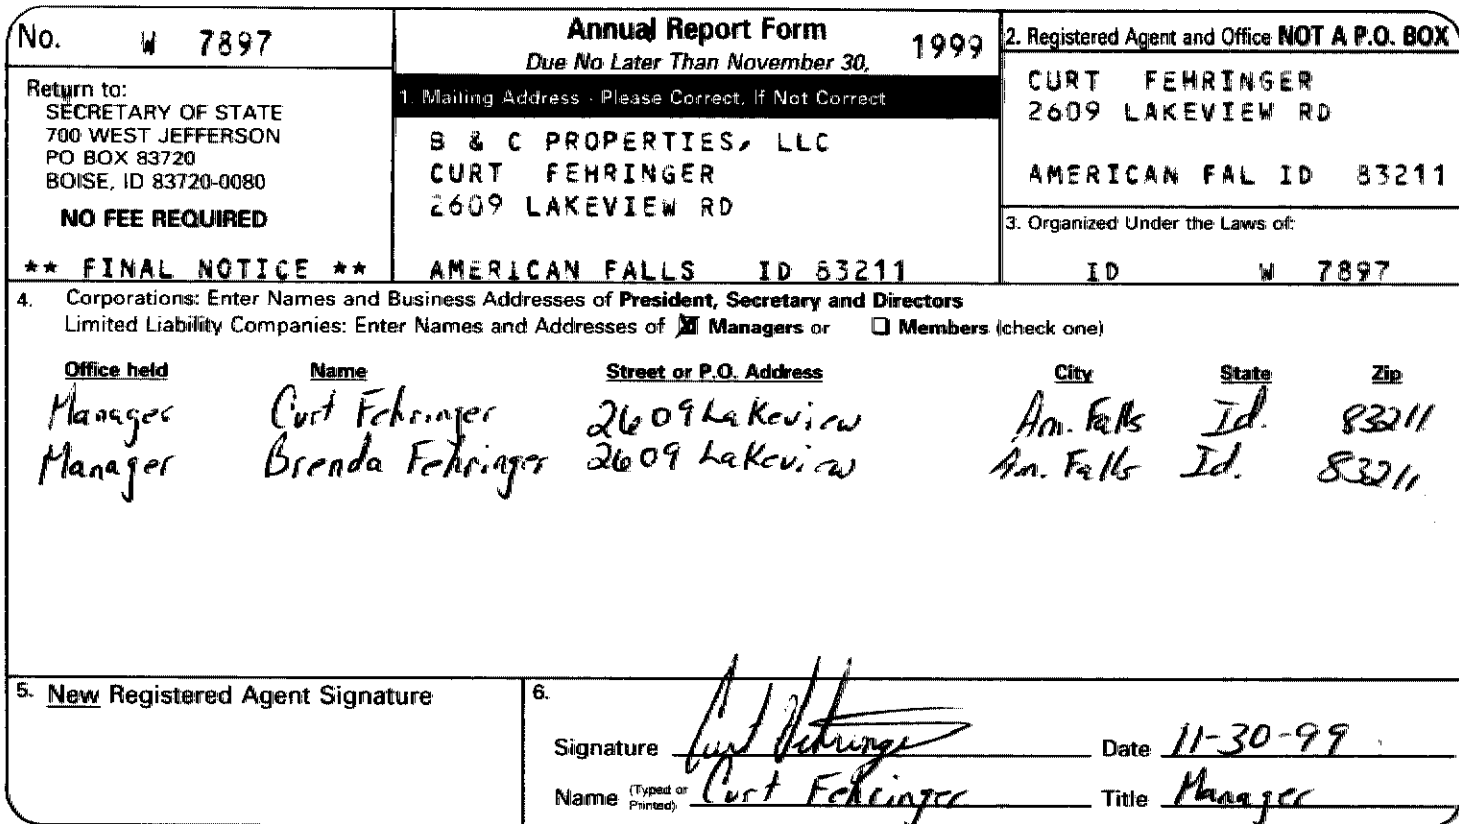 No. W 7897
Return to:
SECRETARY OF STATE
700 WEST JEFFERSON
PO BOX 83720
BOISE, ID 83720-0080
NO FEE REQUIRED
** FINAL NOTICE **
Annual Report Form 1999
Due No Later Than November 30,
1. Mailing Address - Please Correct, If Not Correct
B & C PROPERTIES, LLC
CURT FEHRINGER
2609 LAKEVIEW RD
AMERICAN FALLS ID 83211
2. Registered Agent and Office NOT A P.O. BOX
CURT FEHRINGER
2609 LAKEVIEW RD
AMERICAN FAL ID 83211
3. Organized Under the Laws of:
ID W 7897
4. Corporations: Enter Names and Business Addresses of President, Secretary and Directors
Limited Liability Companies: Enter Names and Addresses of ☒ Managers or ☐ Members (check one)
Office held Name Street or P.O. Address City State Zip
Manager Curt Fehringer 2609 Lakeview Am. Falls Id. 83211
Manager Brenda Fehringer 2609 Lakeview Am. Falls Id. 83211
5. New Registered Agent Signature
6.
Signature Curt Fehringer Date 11-30-99
Name (Typed or Printed) Curt Fehringer Title Manager